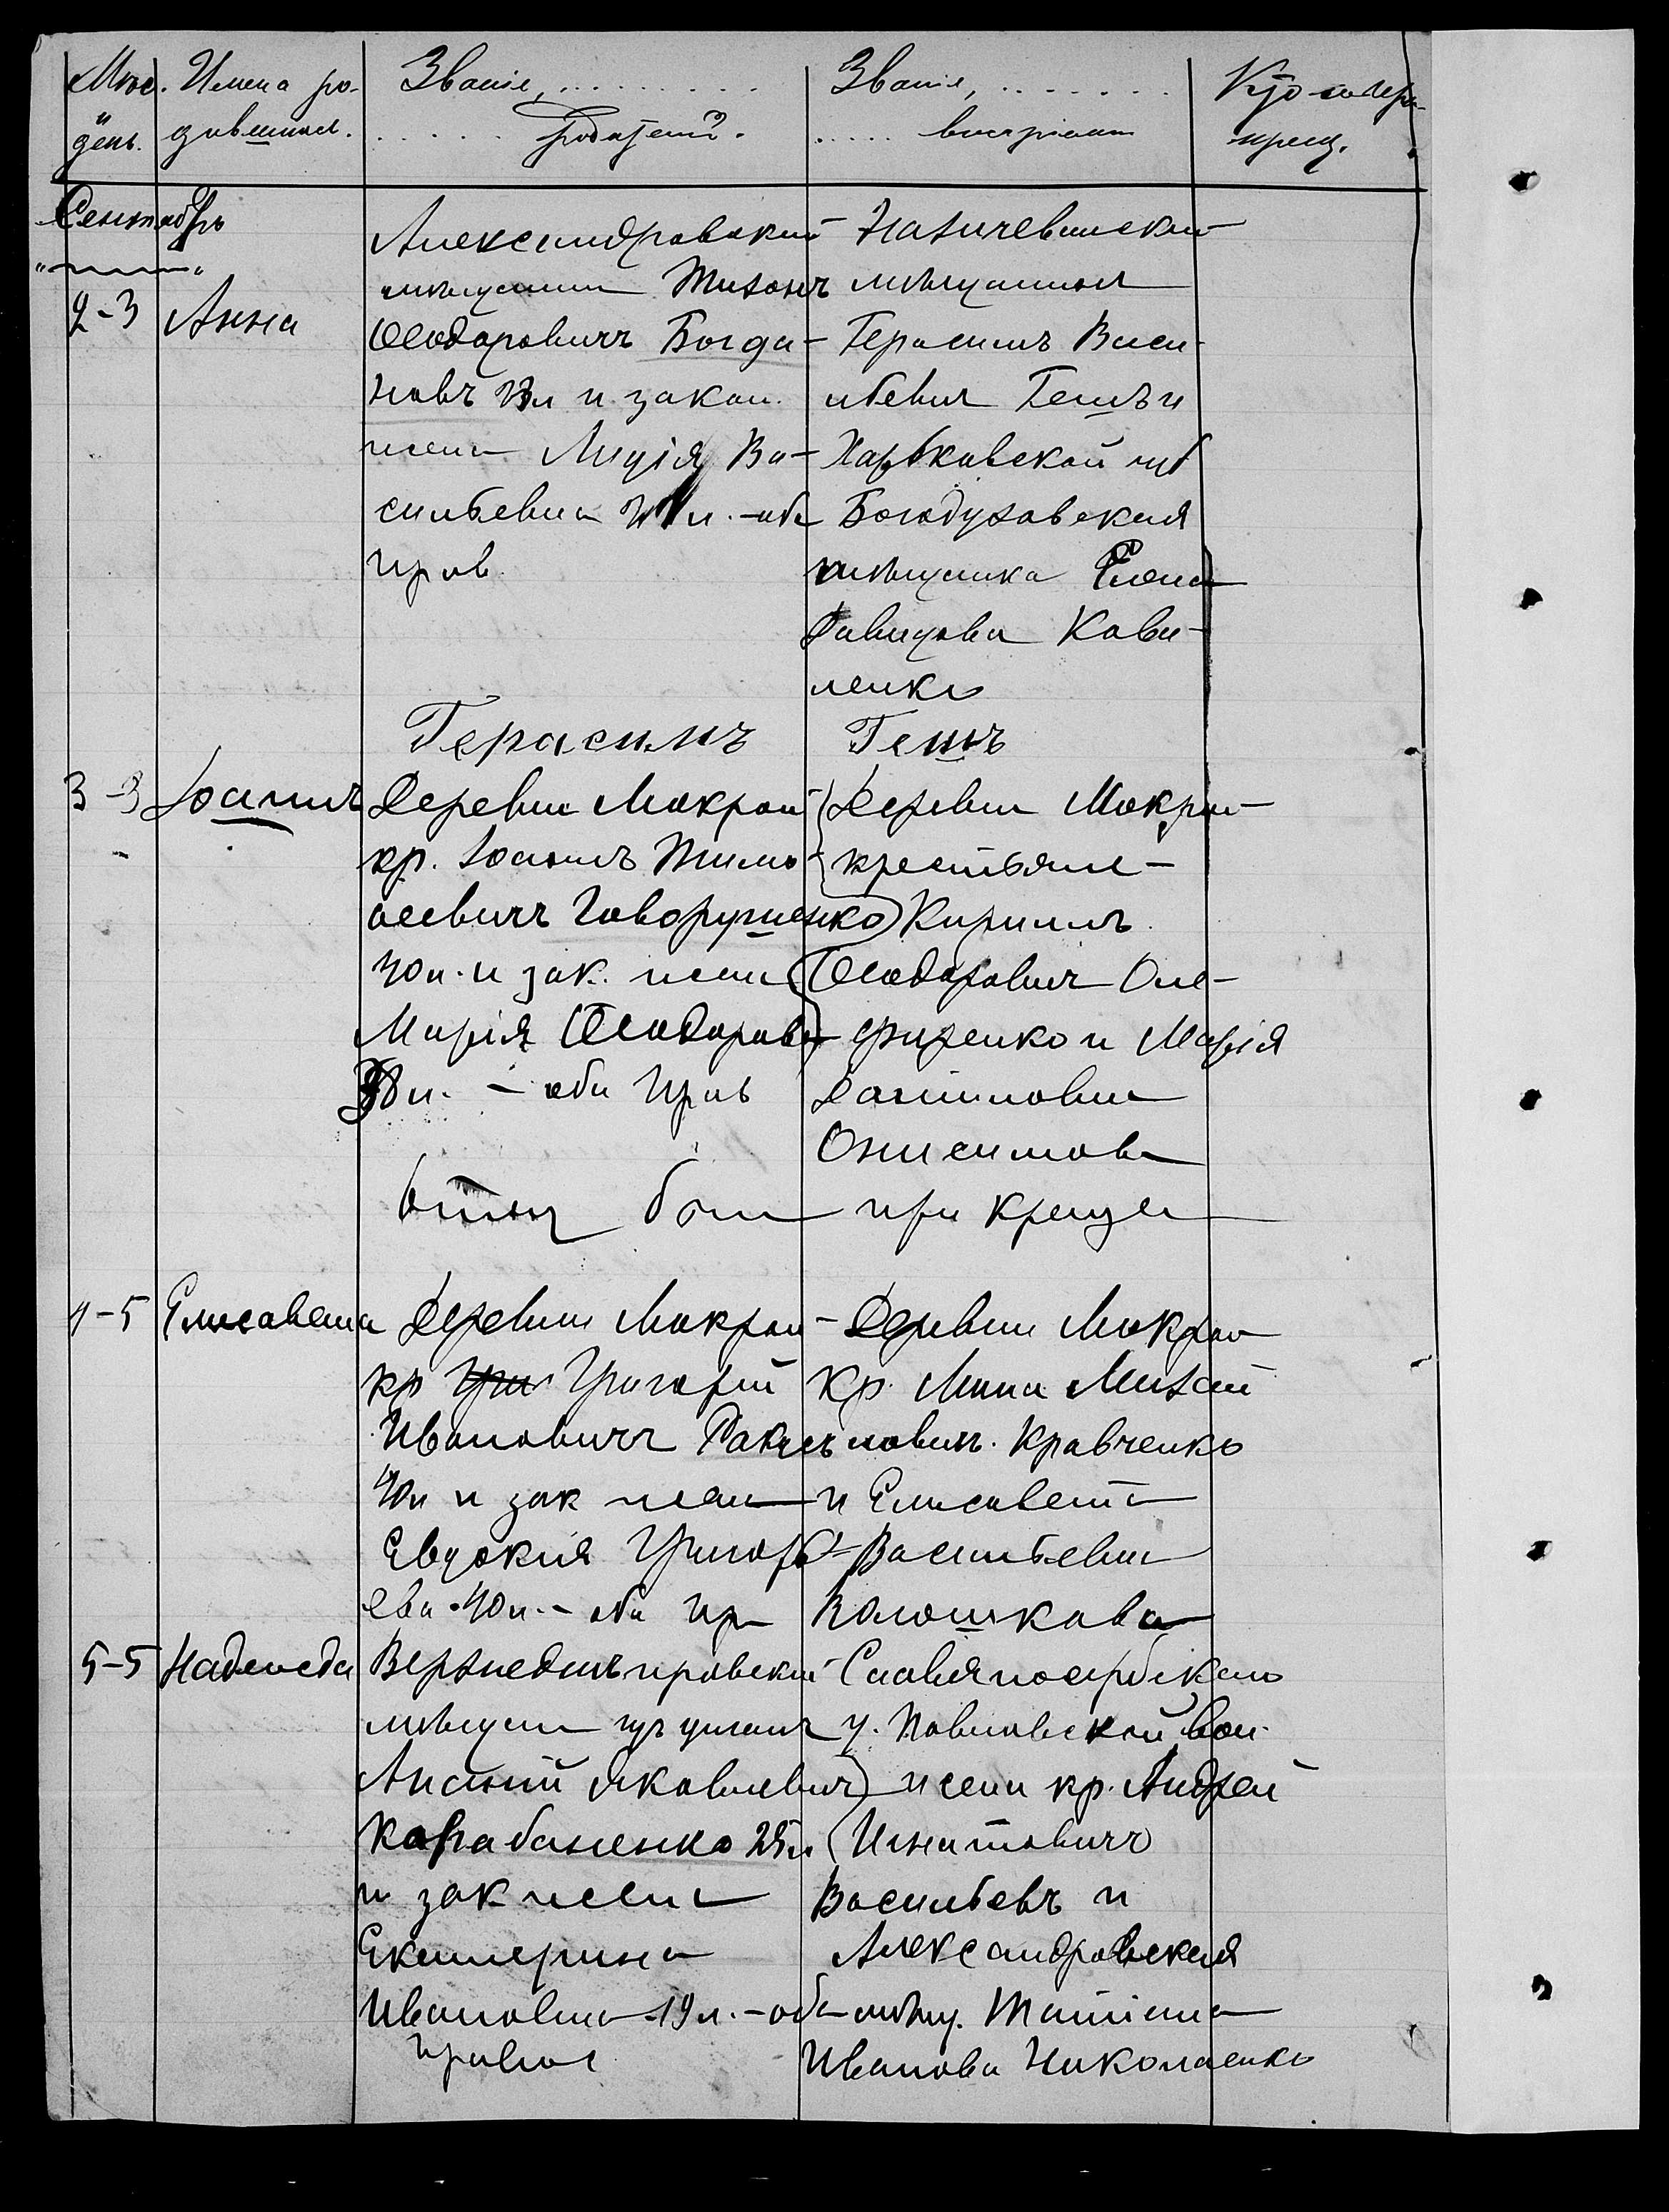 Мѣс. Имена ро- Званіе, ......... Званіе, ....... Кто совер.
и день. дившихся. ..... родителей. ..... воспріем. крещ.
Сентябрь
2-3 Анна
Александровскій
мѣщанинъ Тихонъ
Ѳеодоровичъ Богда-
новъ 23 л и закон.
жена Лидія Ва-
сильевна 21 л. - оба
прав.
Нахичеванской
мѣщанинъ
Герасимъ Васи-
льевич Гешъ и
Харьковской губ
Богодуховская
мѣщанка Елена
Давидова Кова-
ленко
Герасимъ Гешъ
3-3 Іоаннъ
Деревни Мокрой
кр. Іоаннъ Тимо
ѳеевичъ Говорушенко
40 л. и зак. жена
Марія Ѳеодоров
38 л. - оба прав
Деревни Мокрой
крестьяне -
Кириллъ
Ѳеодоровичъ Оне-
фиренко и Марія
Даниловна
Онисимова
Отец был при крещен
4-5 Елисавета
Деревни Мокрой
кр Гри Григорій
Ивановичъ Ракша
40 л и зак жена
Евдокія Григорь-
ева 40 л. - оба пр
Деревни Мокрой
кр. Мина Михай
ловичъ. Кравченко
и Елисавета
Васильевна
Волошкова
5-5 Надежда
Верхнеднѣпровскій
мѣщан изъ цыганъ
Ананій Яковлевич
Карабаненко 25 л
и зак жена
Екатерина
Ивановна 19 л. - оба
правос
Славяносербскаго
у. Павловской вол.
и села кр. Андрей
Игнатовичъ
Васильевъ и
Александровская
мѣщ. Татіана
Иванова Николаенко